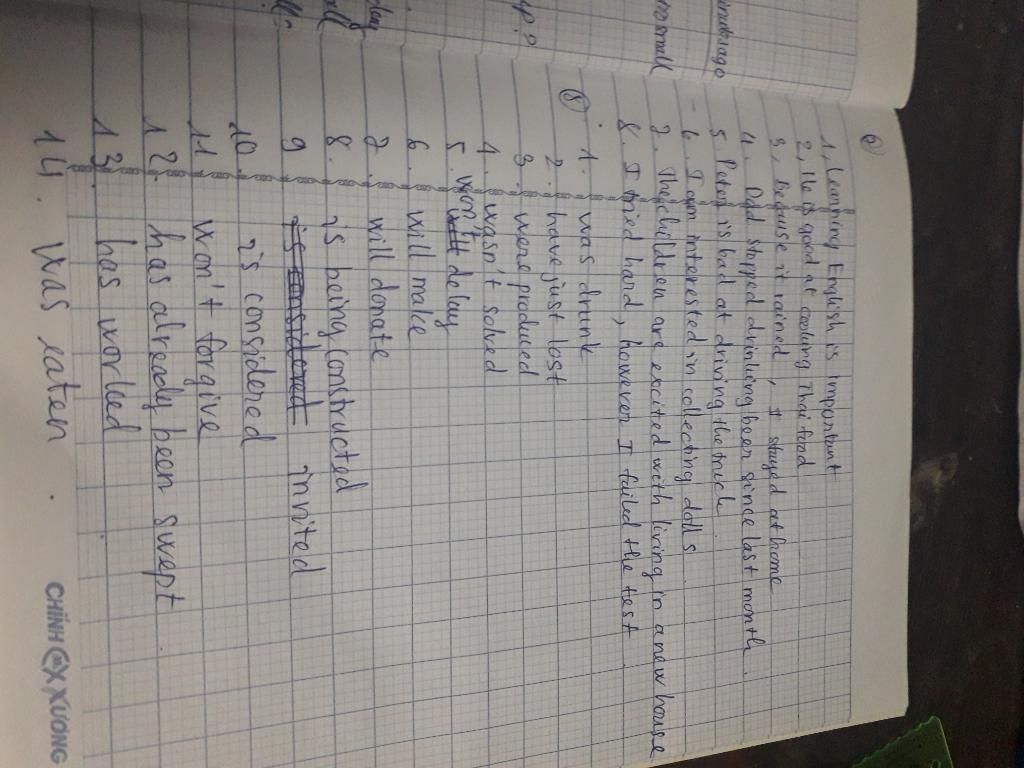 6
1, Learning English is important
2, He is good at cooking Thai food
3, Because it rained, I stayed at home
4. Dad stopped drinking beer since last month.
5 Peter is bad at driving the truck
- 6. I am interested in collecting dolls.
7. The children are excited with living in a new house
8. I tried hard, however I failed the test
8
1. was drunk
2. have just lost
3. were produced
4. wasn't solved
5. won't delay
6. will make
7. will donate
8. is being constructed
9 invited
10. is considered
11 won't forgive
12. has already been swept
13. has worked
14. was eaten.
CHÍNH XƯƠNG
up?